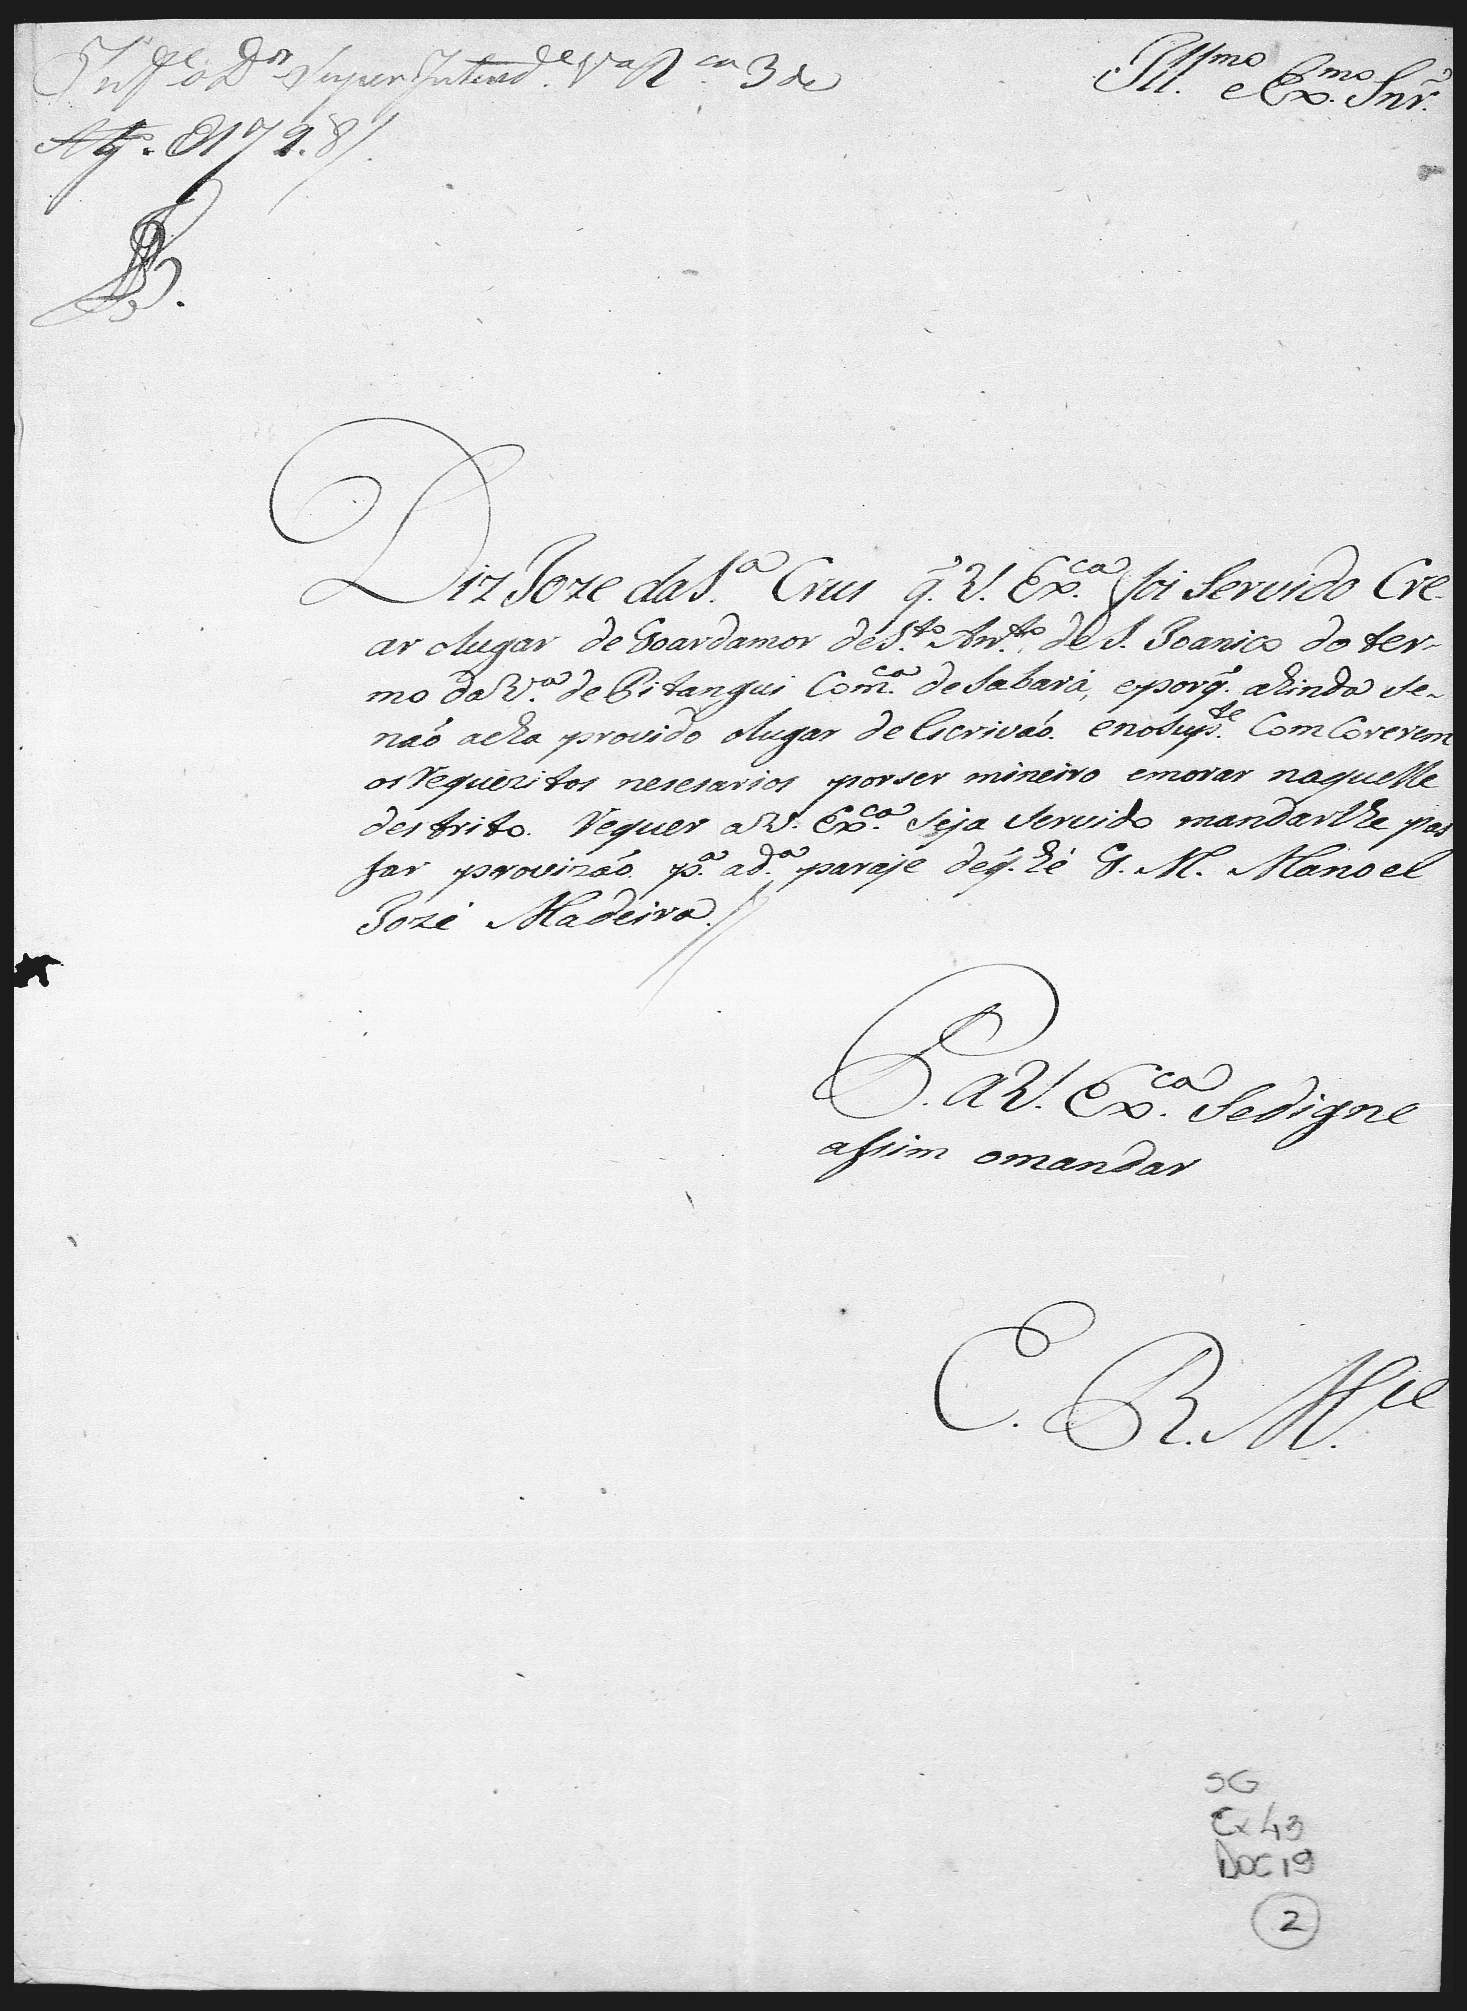 Inf.e o D.or SuperIntend.e V.a R.ca 3 de
Ag.o 8 179.8//.
Ill.mo e Ex.mo Snr̃.
Diz Joze da S.a Crus q̃. V. Ex.ca foi Servido Cre-
ar olugar de Goardamor de S.to An.to de S. Joanico do ter-
mo da V.a de Pitangui Com.ca de Sabará, eporq̃. ahinda se-
náo acha provido olugar de Escriváo. enosup.te Com Corerem
os Requezitos nesesarios porser mineiro emorar naquelle
destrito. Requer a V. Ex.ca seja Servido mandarlhe pas
sar provizáo. p.a ad.a paraje déq̃. hé G. M. Manoel
Jozé Madeira.//
P. a V. Ex.ca Sedigne
assim omandar
E. R. M.ce
SG
Cx 43
Doc 19
2